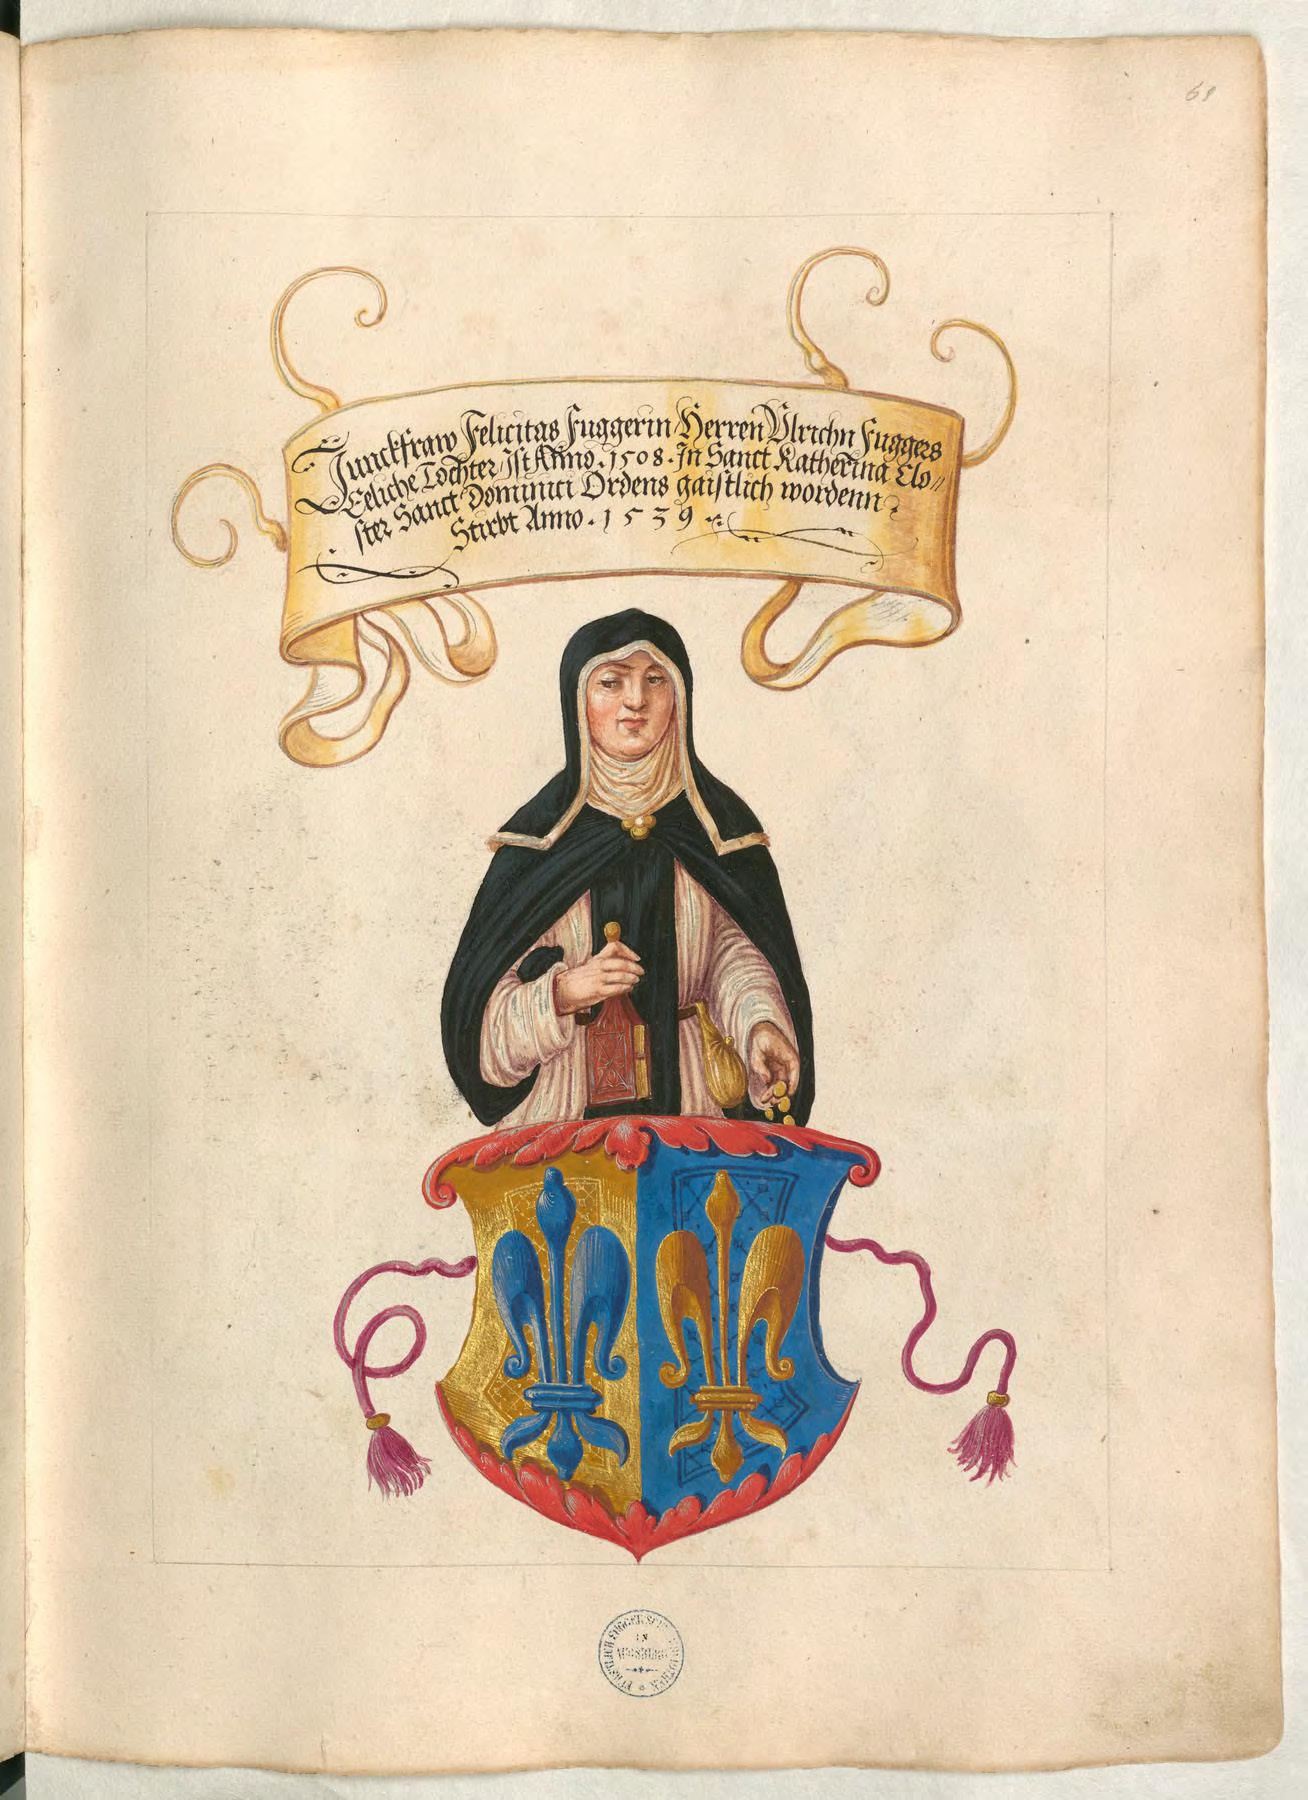 61
Junckfraw Felicitas Fuggerin Herren Vlrichn Fuggers
Eeliche Tochter Ist Anno . 1508 . In Sanct Katherina Clo //
ster Sanct Dominici Ordens gaistlich wordenn
Stirbt Anno . 1539 .
IN